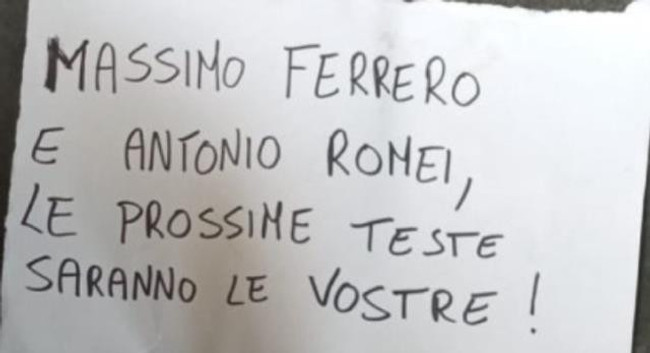 MASSIMO FERRERO
E ANTONIO ROMEI,
LE PROSSIME TESTE
SARANNO LE VOSTRE!